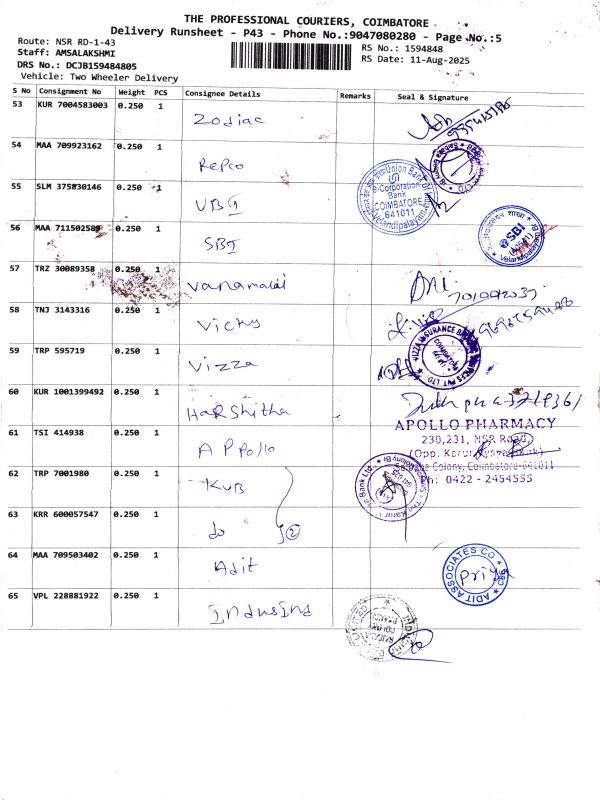 THE PROFESSIONAL COURIERS, COIMBATORE
Delivery Runsheet - P43 - Phone No.:9047080280 - Page No.:5
Route: NSR RD-1-43
Staff: AMSALAKSHMI
DRS No.: DCJB159484805
Vehicle: Two Wheeler Delivery
RS No.: 1594848
RS Date: 11-Aug-2025
S No Consignment No Weight PCS Consignee Details Remarks Seal & Signature
53 KUR 7004583003 0.250 1 Zodiac
54 MAA 709923162 0.250 1 Repco
55 SLM 375830146 0.250 1 UBI
Union Bank Of
e-Corporation
Bank
COIMBATORE
641011
Velandipalayam
56 MAA 711502589 0.250 1 SBI
SBI
Velandipalayam
57 TRZ 30089358 0.250 1 Vanamalai
58 TNJ 3143316 0.250 1 Vicky
59 TRP 595719 0.250 1 Vizza
VIZZA INSURANCE
PVT LTD
COIMBATORE
60 KUR 1001399492 0.250 1 Harshitha
61 TSI 414938 0.250 1 Appollo
APOLLO PHARMACY
230,231, NSR Road,
(Opp. Karur Vysya Bank)
Saibaba Colony, Coimbatore-641011
Ph: 0422 - 2454555
62 TRP 7001980 0.250 1 KVB
63 KRR 600057547 0.250 1 do 2
64 MAA 709503402 0.250 1 Adit
ADIT ASSOCIATES CO
CBE
Priya
65 VPL 228881922 0.250 1 Indusind